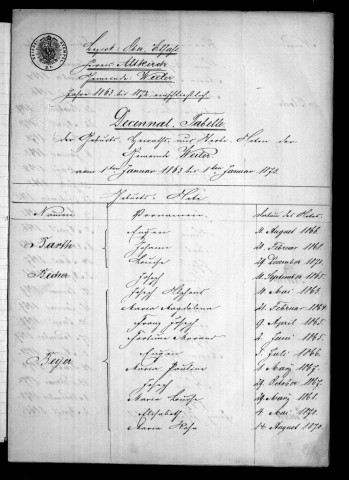 Bezirk Ober Elsass
Kreis Altkirch
Gemeinde Weiler
Jahre 1863 bis 1872 einschließlich
Decennal-Tabelle
der Geburts, Heiraths und Sterbe-Akten der
Gemeinde Weiler
vom 1ten Januar 1863 bis 1ten Januar 1873.
Geburts-Akte
Namen Vornamen Datum des Aktes
Eugen August 1866
Barth Johann Februar 1868
Louise 29 December 1871
Joseph September 1865
Joseph Alphons 4 Mai 1863
Maria Magdalena 21 Februar 1864
Franz Joseph 9 April 1865
Morand 2 Juni 1865
Eugen Juli 1866
Beyer Maria Pauline März 1867
Joseph 29 October 1867
Maria Louise 29 März 1868
Elisabeth 4 Mai 1870
Maria Rosa 14 August 1870